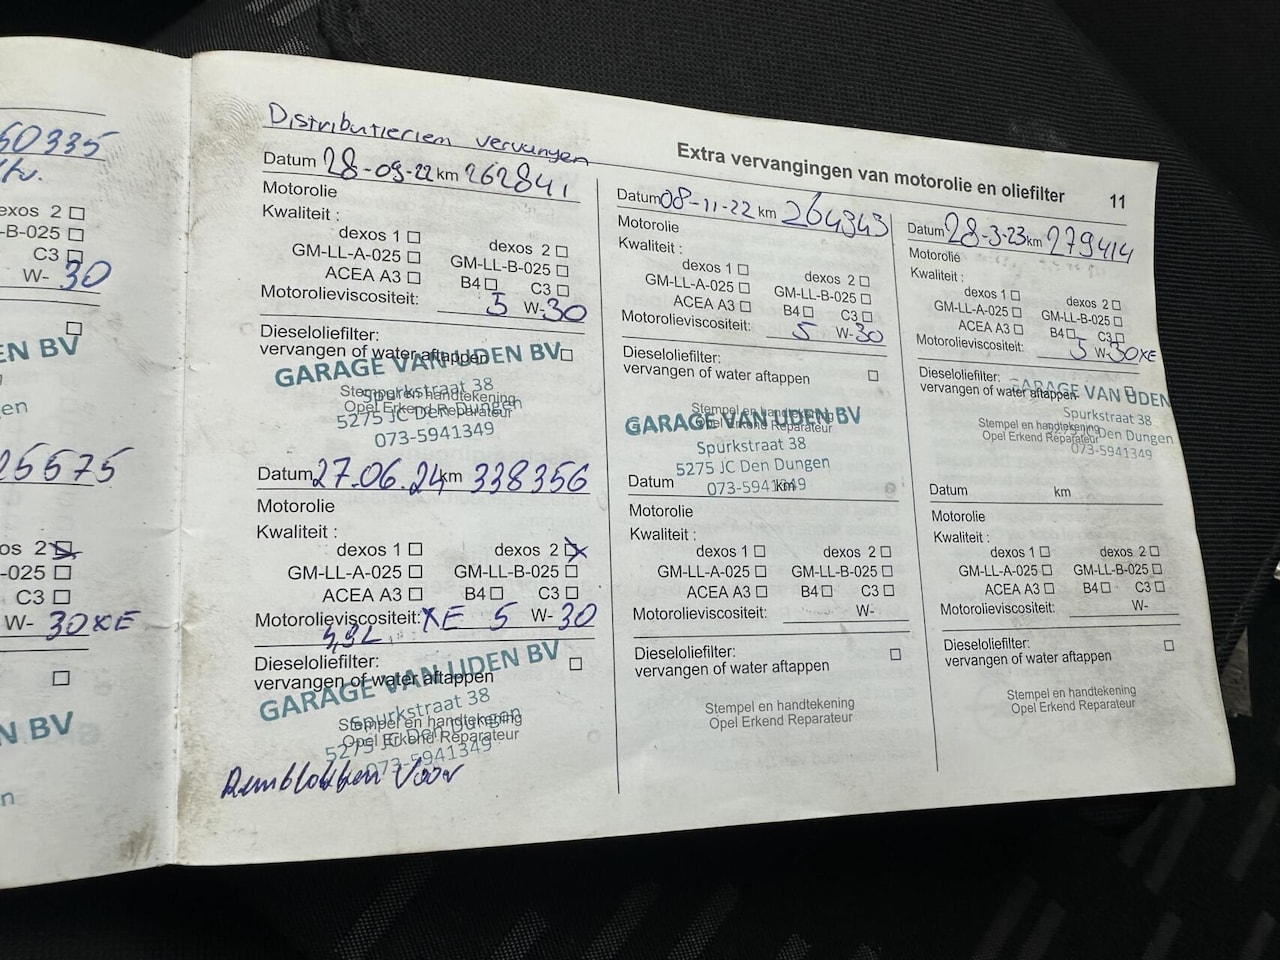 50335
exos 2
-B-025
C3
W- 30
EN BV
en
25575
os 2
-025
C3
W- 30 XE
N BV
n
Extra vervangingen van motorolie en oliefilter 11
Distributieriem vervangen
Datum 28-09-22 km 262841
Motorolie
Kwaliteit :
dexos 1 dexos 2
GM-LL-A-025 GM-LL-B-025
ACEA A3 B4 C3
Motorolieviscositeit: 5 W-30
Dieseloliefilter:
vervangen of water aftappen
GARAGE VAN UDEN BV
Stempel en handtekening
Opel Erkend Reparateur
Spurkstraat 38
5275 JC Den Dungen
073-5941349
Datum 08-11-22 km 264343
Motorolie
Kwaliteit :
dexos 1 dexos 2
GM-LL-A-025 GM-LL-B-025
ACEA A3 B4 C3
Motorolieviscositeit: 5 W-30
Dieseloliefilter:
vervangen of water aftappen
Stempel en handtekening
Opel Erkend Reparateur
GARAGE VAN UDEN BV
Spurkstraat 38
5275 JC Den Dungen
073-5941349
Datum 28-3-23 km 279414
Motorolie
Kwaliteit :
dexos 1 dexos 2
GM-LL-A-025 GM-LL-B-025
ACEA A3 B4 C3
Motorolieviscositeit: 5 W-30XE
Dieseloliefilter:
vervangen of water aftappen
GARAGE VAN UDEN
Stempel en handtekening
Opel Erkend Reparateur
Spurkstraat 38
5275 JC Den Dungen
073-5941349
Datum 27.06.24 km 338356
Motorolie
Kwaliteit :
dexos 1 dexos 2
GM-LL-A-025 GM-LL-B-025
ACEA A3 B4 C3
Motorolieviscositeit: XE 5 W-30
Dieseloliefilter:
vervangen of water aftappen
GARAGE VAN UDEN BV
Stempel en handtekening
Opel Erkend Reparateur
Spurkstraat 38
5275 JC Den Dungen
073-5941349
Remblokken Voor
Datum km
Motorolie
Kwaliteit :
dexos 1 dexos 2
GM-LL-A-025 GM-LL-B-025
ACEA A3 B4 C3
Motorolieviscositeit: W-
Dieseloliefilter:
vervangen of water aftappen
Stempel en handtekening
Opel Erkend Reparateur
Datum km
Motorolie
Kwaliteit :
dexos 1 dexos 2
GM-LL-A-025 GM-LL-B-025
ACEA A3 B4 C3
Motorolieviscositeit: W-
Dieseloliefilter:
vervangen of water aftappen
Stempel en handtekening
Opel Erkend Reparateur